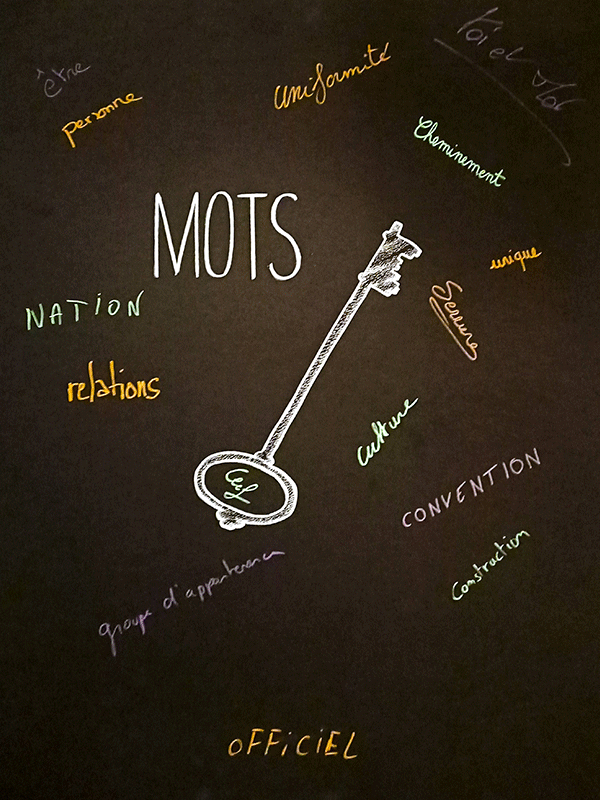 être
personne
Uniformité
Cheminement
MOTS
unique
NATION
relations
culture
CONVENTION
Construction
groupe d'appartenance
OFFICIEL